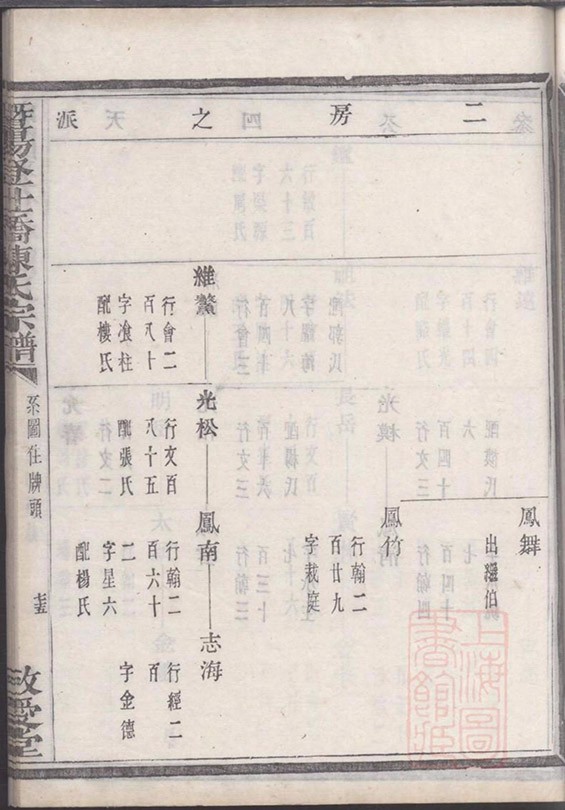 二房之派
鳳舞
出繼伯
鳳竹
行翰二
百廿九
字裁庭
維鰲
行會二
百八十
字飡柱
配樓氏
光松
行文百
八十五
配張氏
鳳南
行翰二
百六十
二
字星六
配楊氏
志海
行經二
百
字金德
暨陽
橋陳氏宗譜
系圖住牌頭
敬愛堂
上海圖書館藏